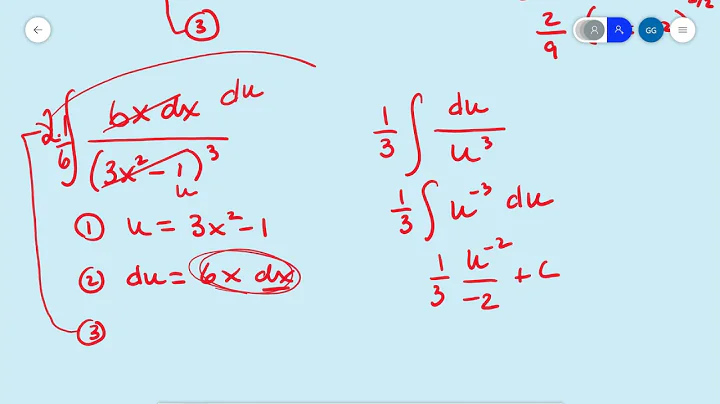 ③
2/9 (
GG
2·1/6 ∫ 6x dx / (3x² - 1)³ du
u
① u = 3x² - 1
② du = 6x dx
③
1/3 ∫ du / u³
1/3 ∫ u⁻³ du
1/3 u⁻² / -2 + C